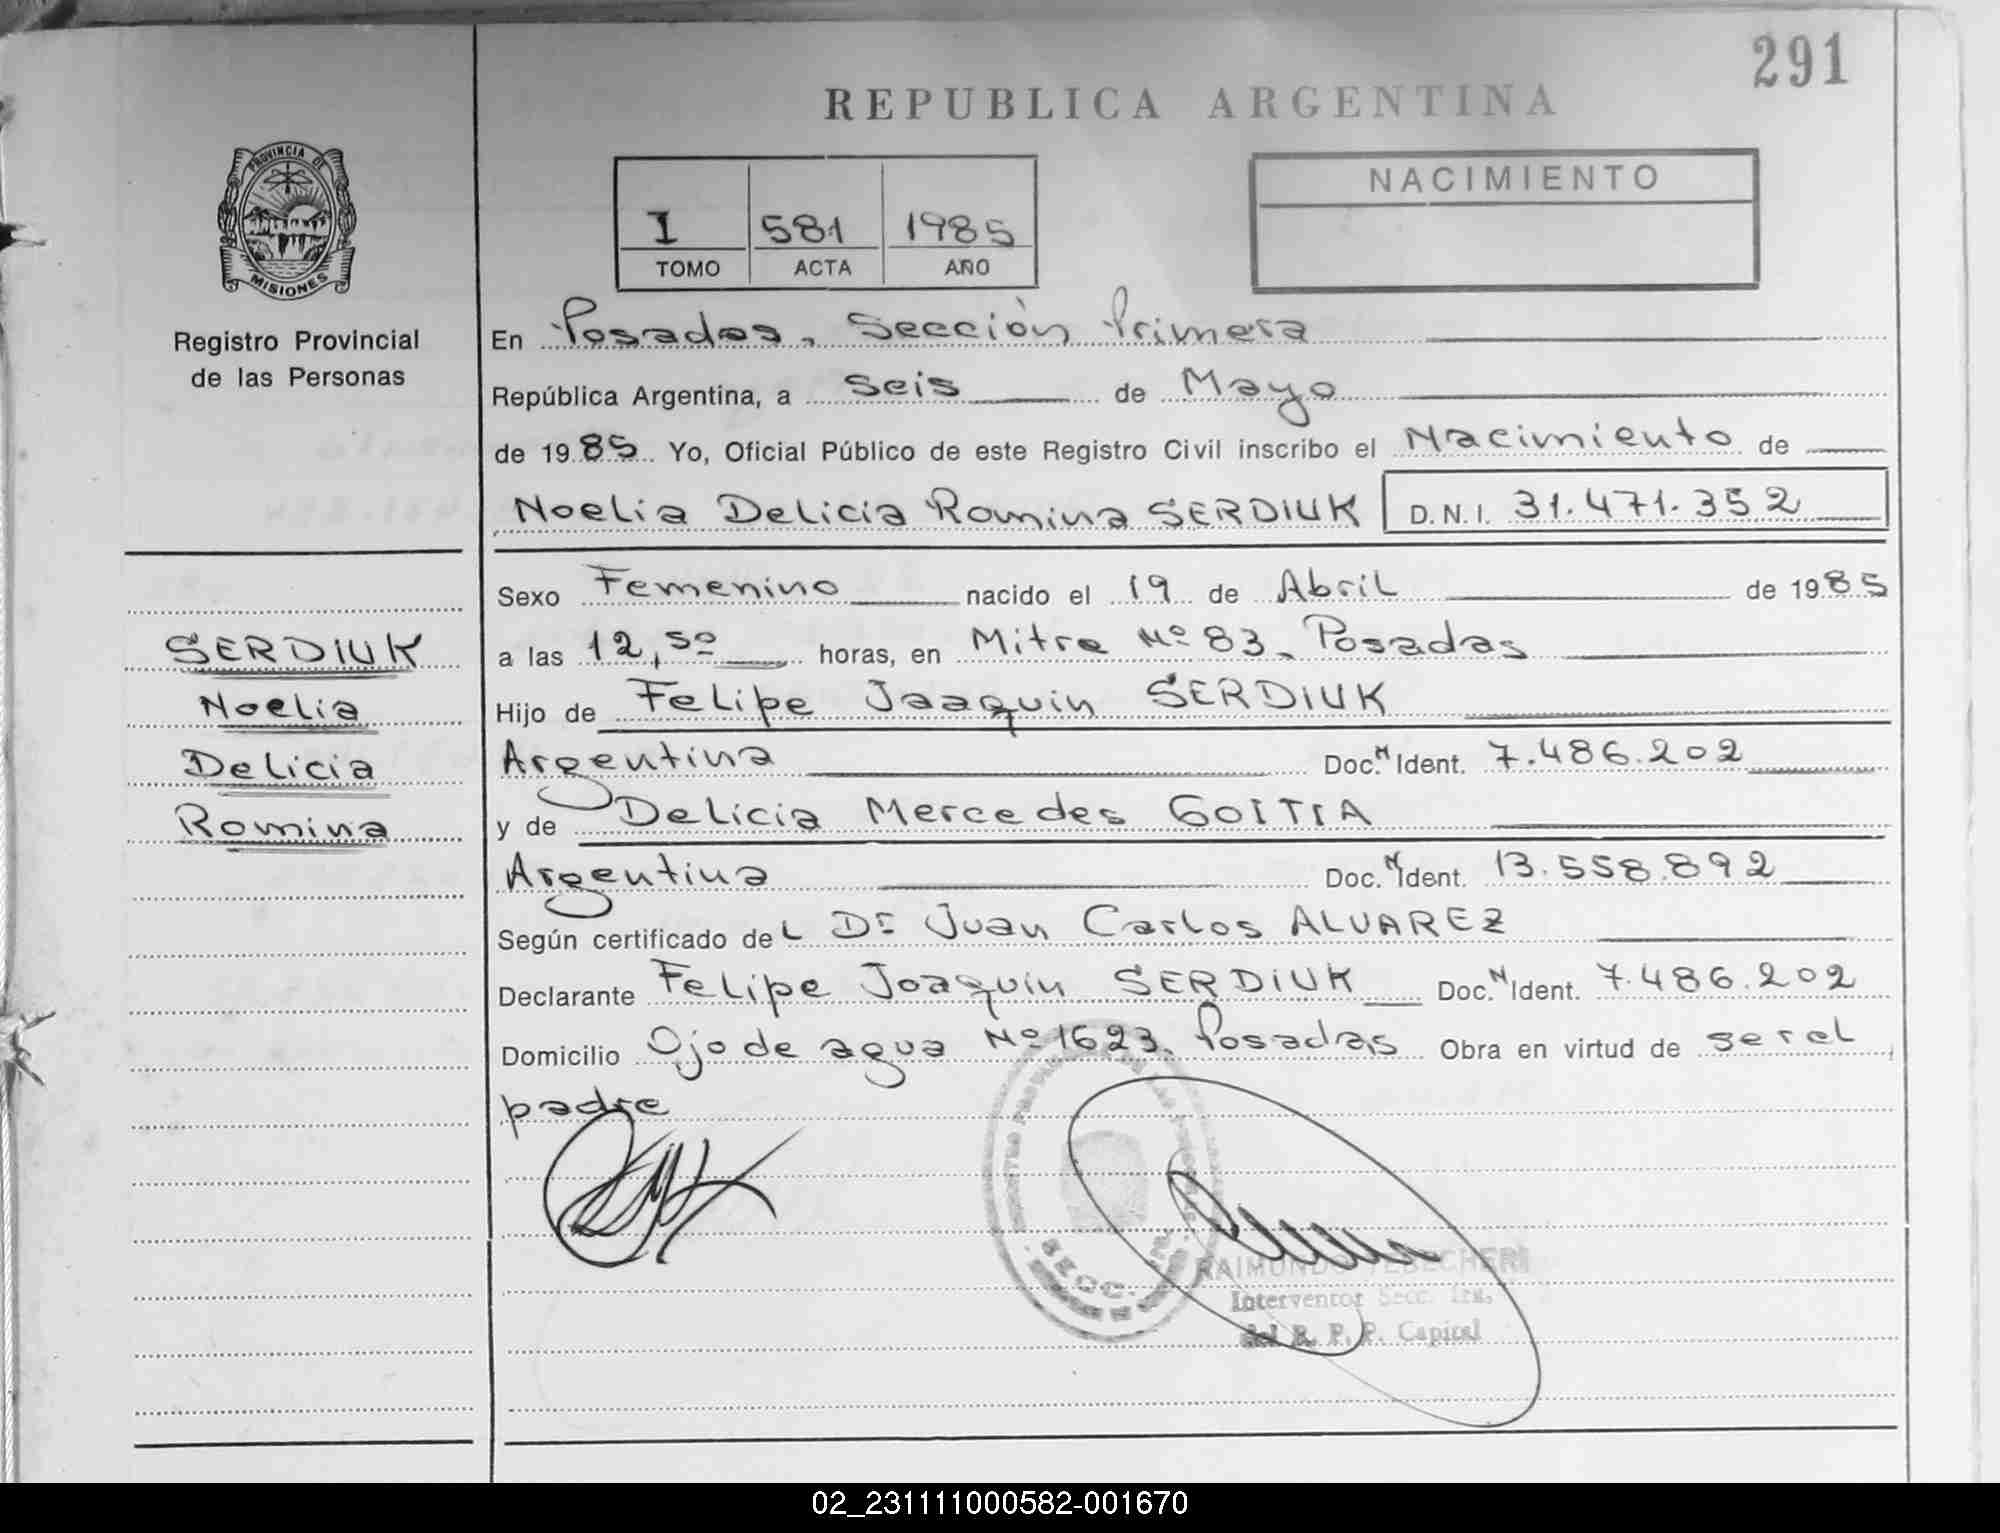 291
REPUBLICA ARGENTINA
PROVINCIA DE
MISIONES
Registro Provincial
de las Personas
I 581 1985
TOMO ACTA AÑO
NACIMIENTO
En Posadas, Sección Primera
República Argentina, a Seis de Mayo
de 1985 Yo, Oficial Público de este Registro Civil inscribo el Nacimiento de
Noelia Delicia Romina SERDIUK D.N.I. 31.471.352
Sexo Femenino nacido el 19 de Abril de 1985
a las 12,50 horas, en Mitre Nº 83. Posadas
Hijo de Felipe Joaquin SERDIUK
Argentina Doc. N Ident. 7.486.202
y de Delicia Mercedes GOITIA
Argentina Doc. N Ident. 13.558.892
Según certificado del Dr Juan Carlos ALVAREZ
Declarante Felipe Joaquin SERDIUK Doc. N Ident. 7.486.202
Domicilio Ojo de agua Nº 1623. Posadas Obra en virtud de ser el
padre
SERDIUK
Noelia
Delicia
Romina
SECC.
RAIMUNDO
Interventor Secc. 1ra.
del R. P. P. Capital
02_231111000582-001670